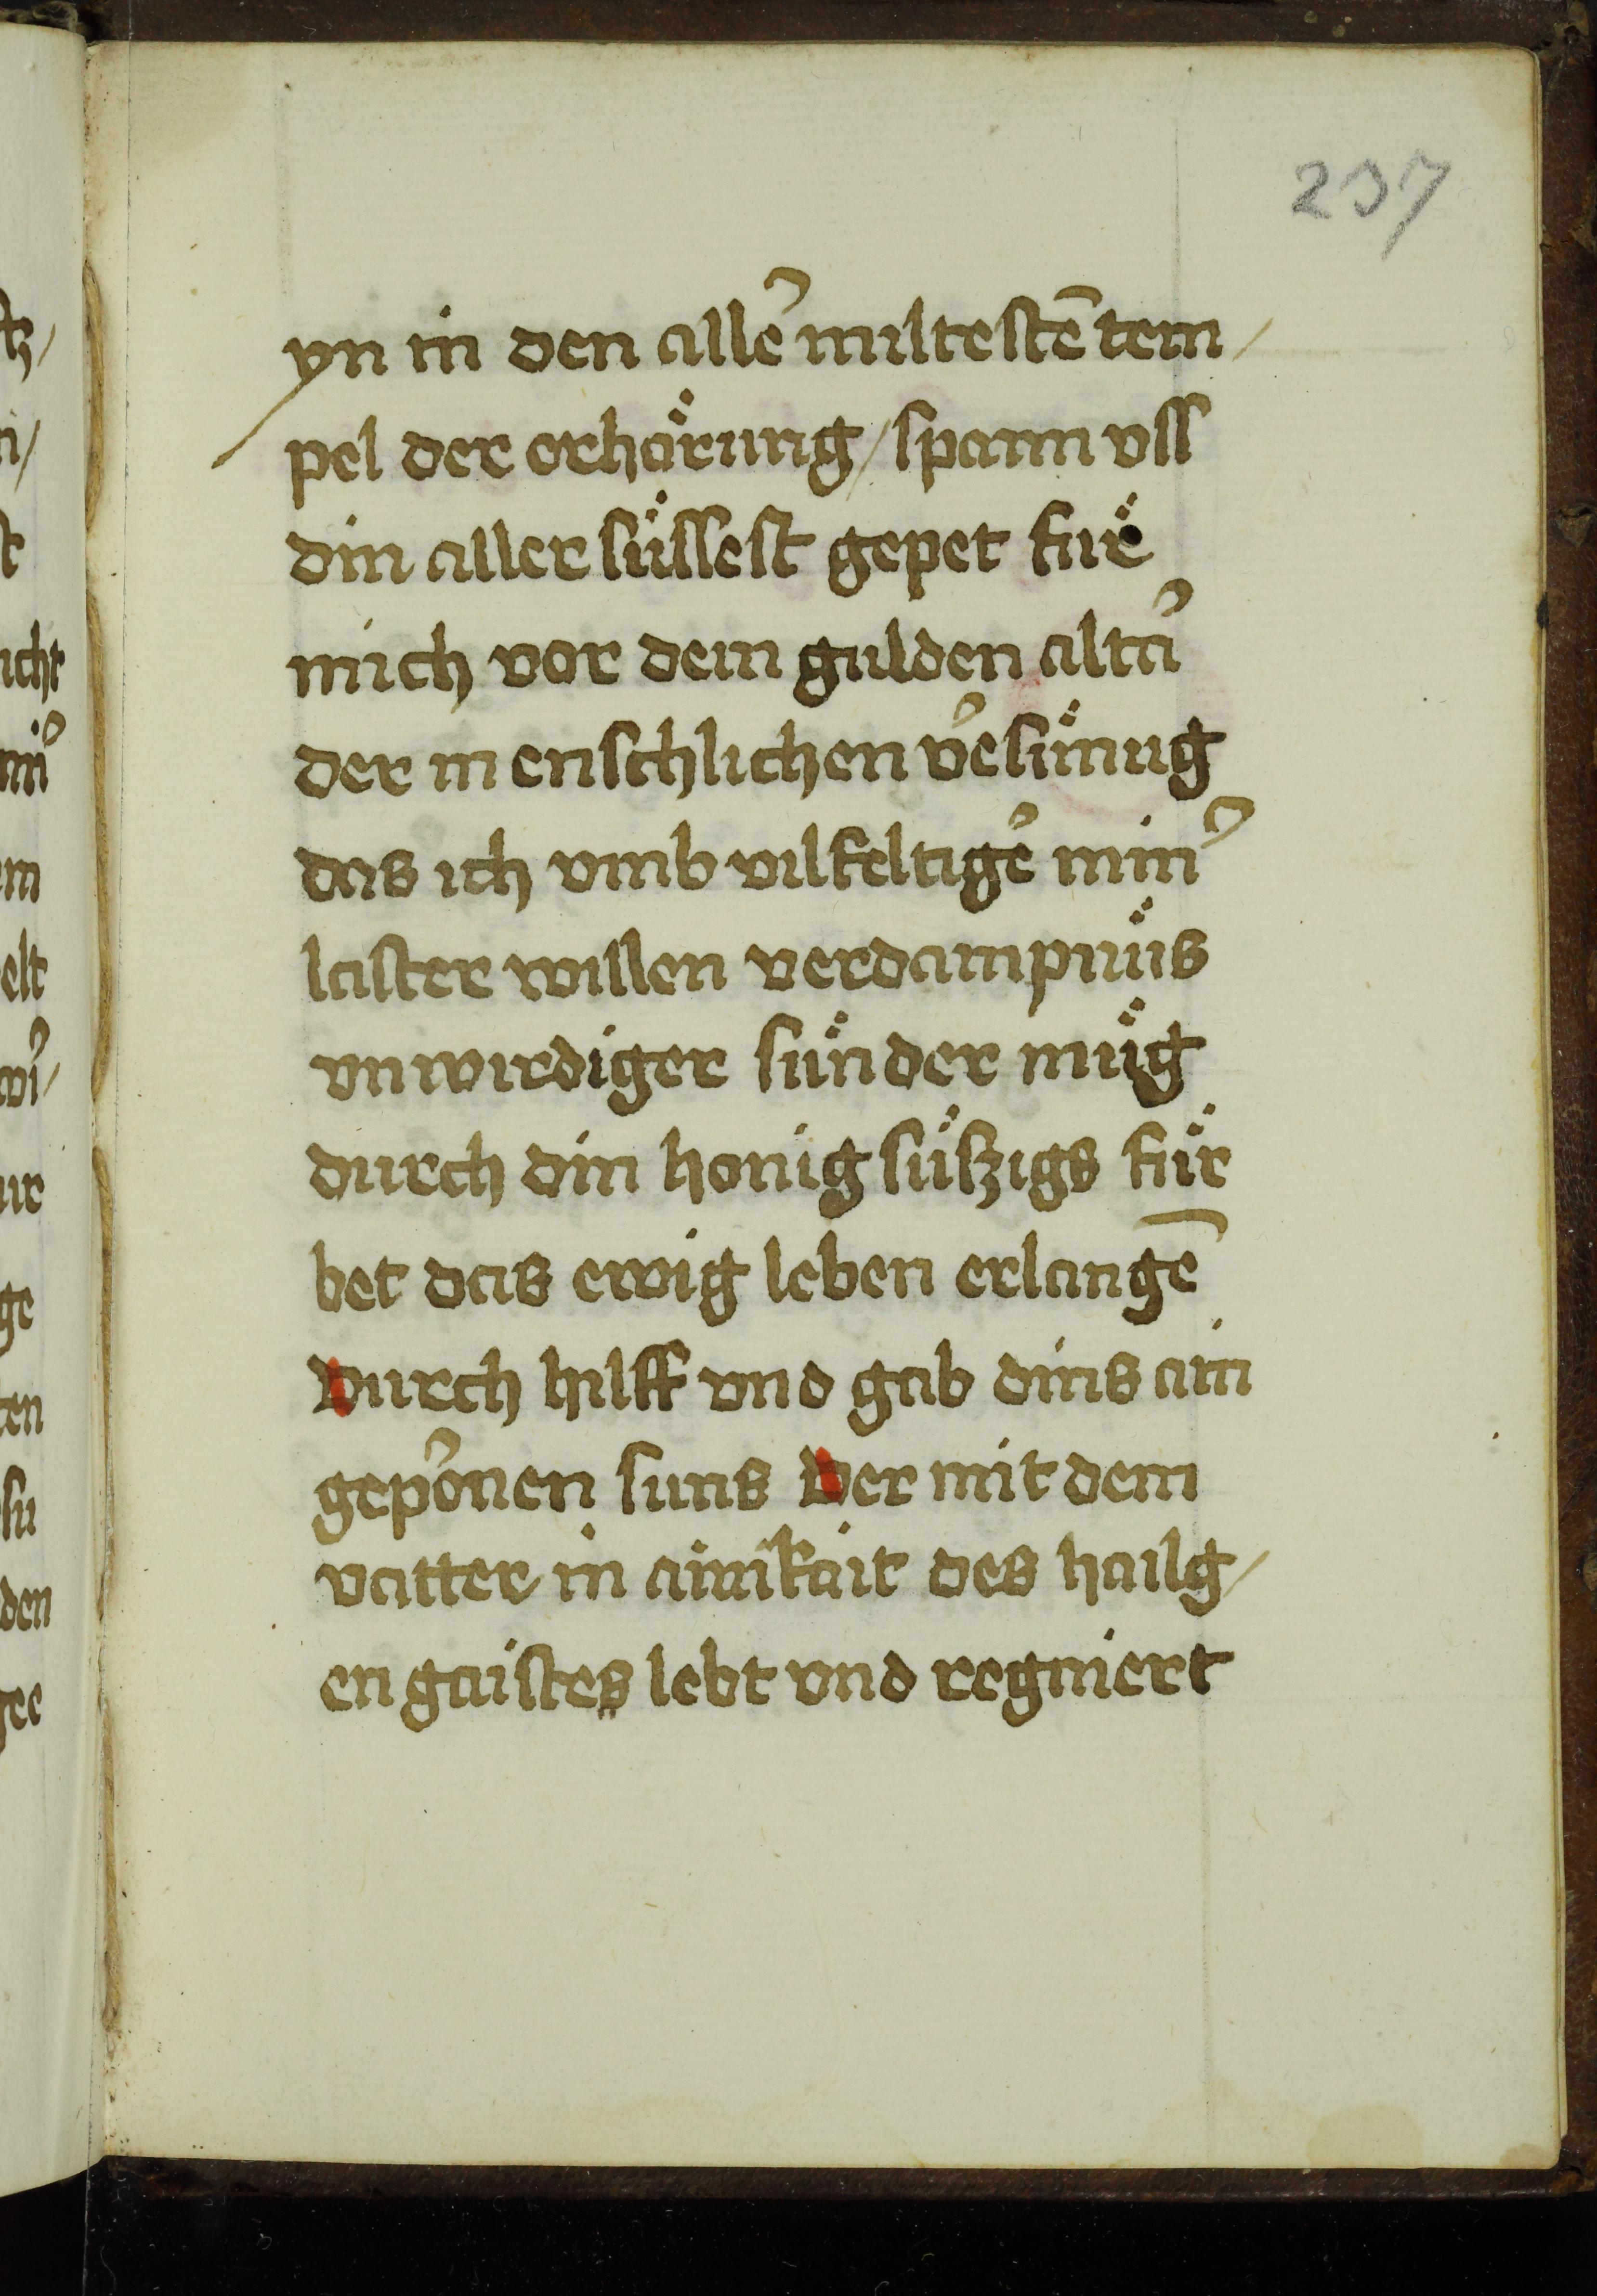 237
yn in den alleꝛ᷒ miltestē tem/
pel der erhöꝛung / spann vss
din aller süssest gepet für
mich vor dem gulden alta᷒
der menschlichen v᷒esünug
das ich vmb vilfeltige᷒ min᷒
laster willen verdampnüs
vnwirdiger sünder müg
durch din honig süszigs für
bet das ewig leben erlangē
Durch hilff vnd gab dins ain
gep᷒onen suns Der mit dem
vatter in ainikait des hailg/
en gaistes lebt vnd regniert